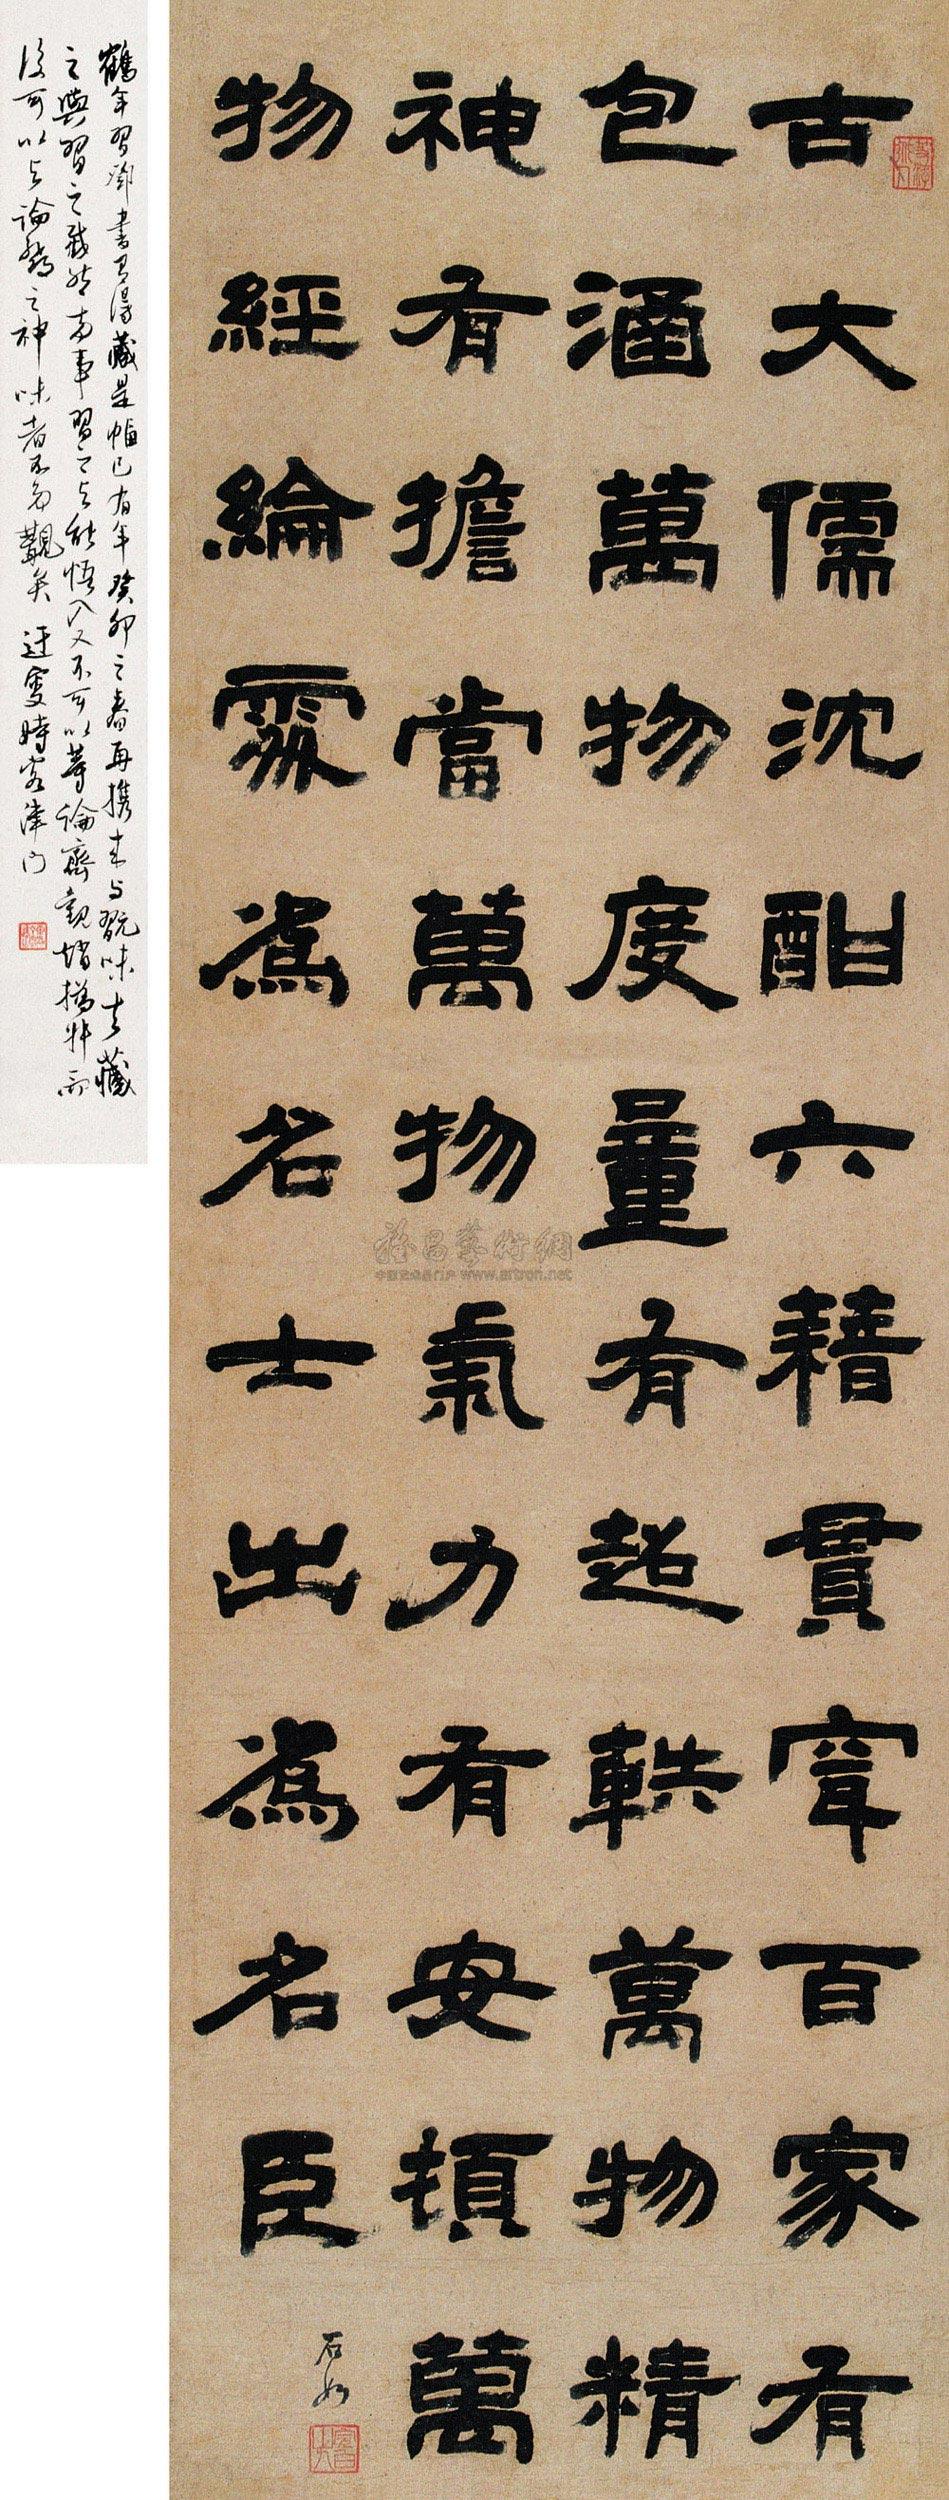 古大儒沈酣六藉貫穿百家有
包涵萬物度量有超軼萬物精
神有擔當萬物氣力有安頓萬
物經綸處為名士出為名臣
石如
鶴年習鄧書有得藏是幅已有年癸卯之春再攜來与翫味去藏
之與習之截然兩事習之与能悟入又不可以等論齊觀
後可以与論鄧之神味者不多觀矣 迂叟時客津門
www.artron.net